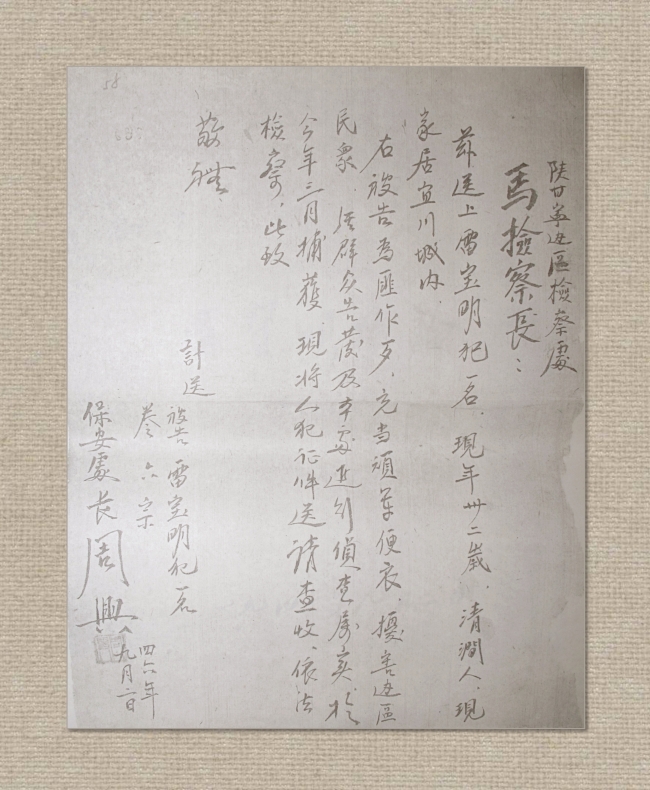 陕甘寧边區檢察處
馬檢察長：
茲送上雷宝明犯一名．現年卅二歲．清澗人．現
家居宜川城内．
右被告為匪作歹．充当頑軍便衣．擾害边區
民衆．经群众告發及本處进行偵查屬实於
今年三月捕獲．現將人犯证件送請查收．依法
檢察，此致
敬禮
計送
被告雷宝明犯一名
卷六宗
保安處长周興
四六年
九月二日
58